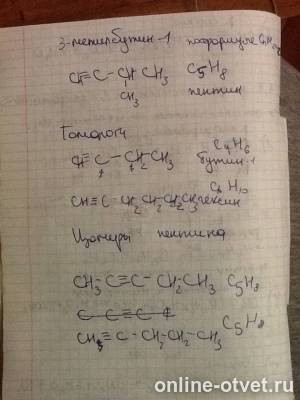 3-метилбутин-1 по формуле CnH
CH≡C-CH-CH3 C5H8
CH3 пентин
Гомологи
CH≡C-CH2CH3 C4H6
бутин-1
CH≡C-CH2CH2CH2CH3 гексин C6H10
Изомеры пентина
CH3C≡C-CH2-CH3 C5H8
C-C≡C-C
CH≡C-CH2-CH2-CH3 C5H8
online-otvet.ru